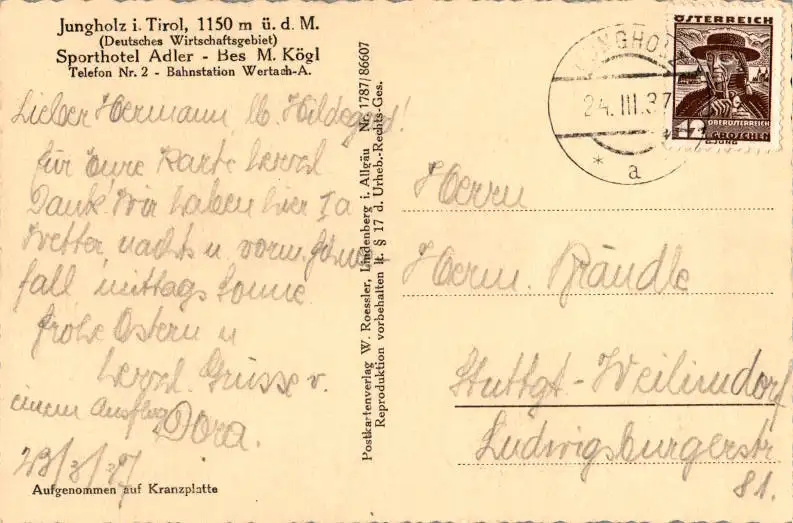 Jungholz i. Tirol, 1150 m ü. d. M.
(Deutsches Wirtschaftsgebiet)
Sporthotel Adler - Bes M. Kögl
Telefon Nr. 2 - Bahnstation Wertach-A.
Lieber Hermann, lb. Hildegard!
für Eure Karte herzl
Dank. Wir haben hier Ia
Wetter, nachts u. vorm. Schnee
fall mittags Sonne.
frohe Ostern u
herzl. Grüsse v.
einem Ausflug Dora.
23/3/37
Aufgenommen auf Kranzplatte
Postkartenverlag W. Roessler, Lindenberg i. Allgäu Nr. 1787/86607
Reproduktion vorbehalten lt. § 17 d. Urheb.-Rechts-Ges.
JUNGHOLZ
24.III.37
* a
ÖSTERREICH
OBERÖSTERREICH
12 GROSCHEN
Herrn
Herm. Brändle
Stuttgt-Weilimdorf
Ludwigsburgerstr
81.